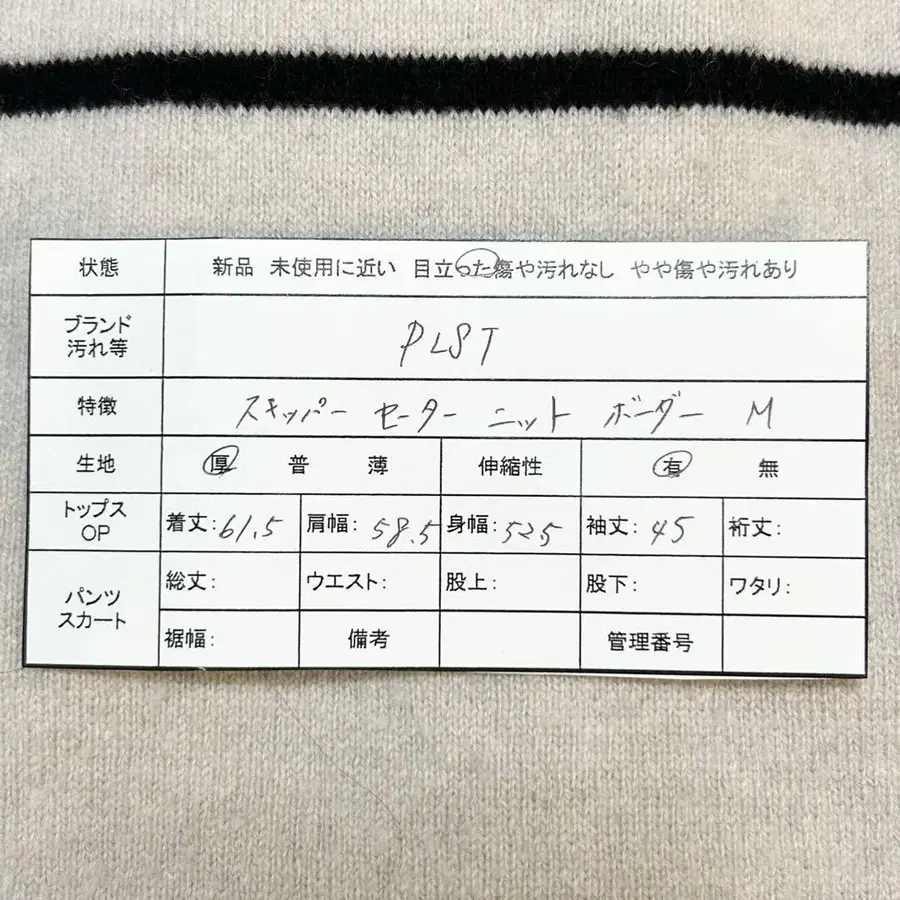 状態 新品 未使用に近い 目立った傷や汚れなし やや傷や汚れあり
ブランド
汚れ等 PLST
特徴 スキッパー セーター ニット ボーダー M
生地 厚 普 薄 伸縮性 有 無
トップス
OP 着丈:61.5 肩幅:58.5 身幅:52.5 袖丈:45 裄丈:
パンツ
スカート 総丈: ウエスト: 股上: 股下: ワタリ:
裾幅: 備考 管理番号